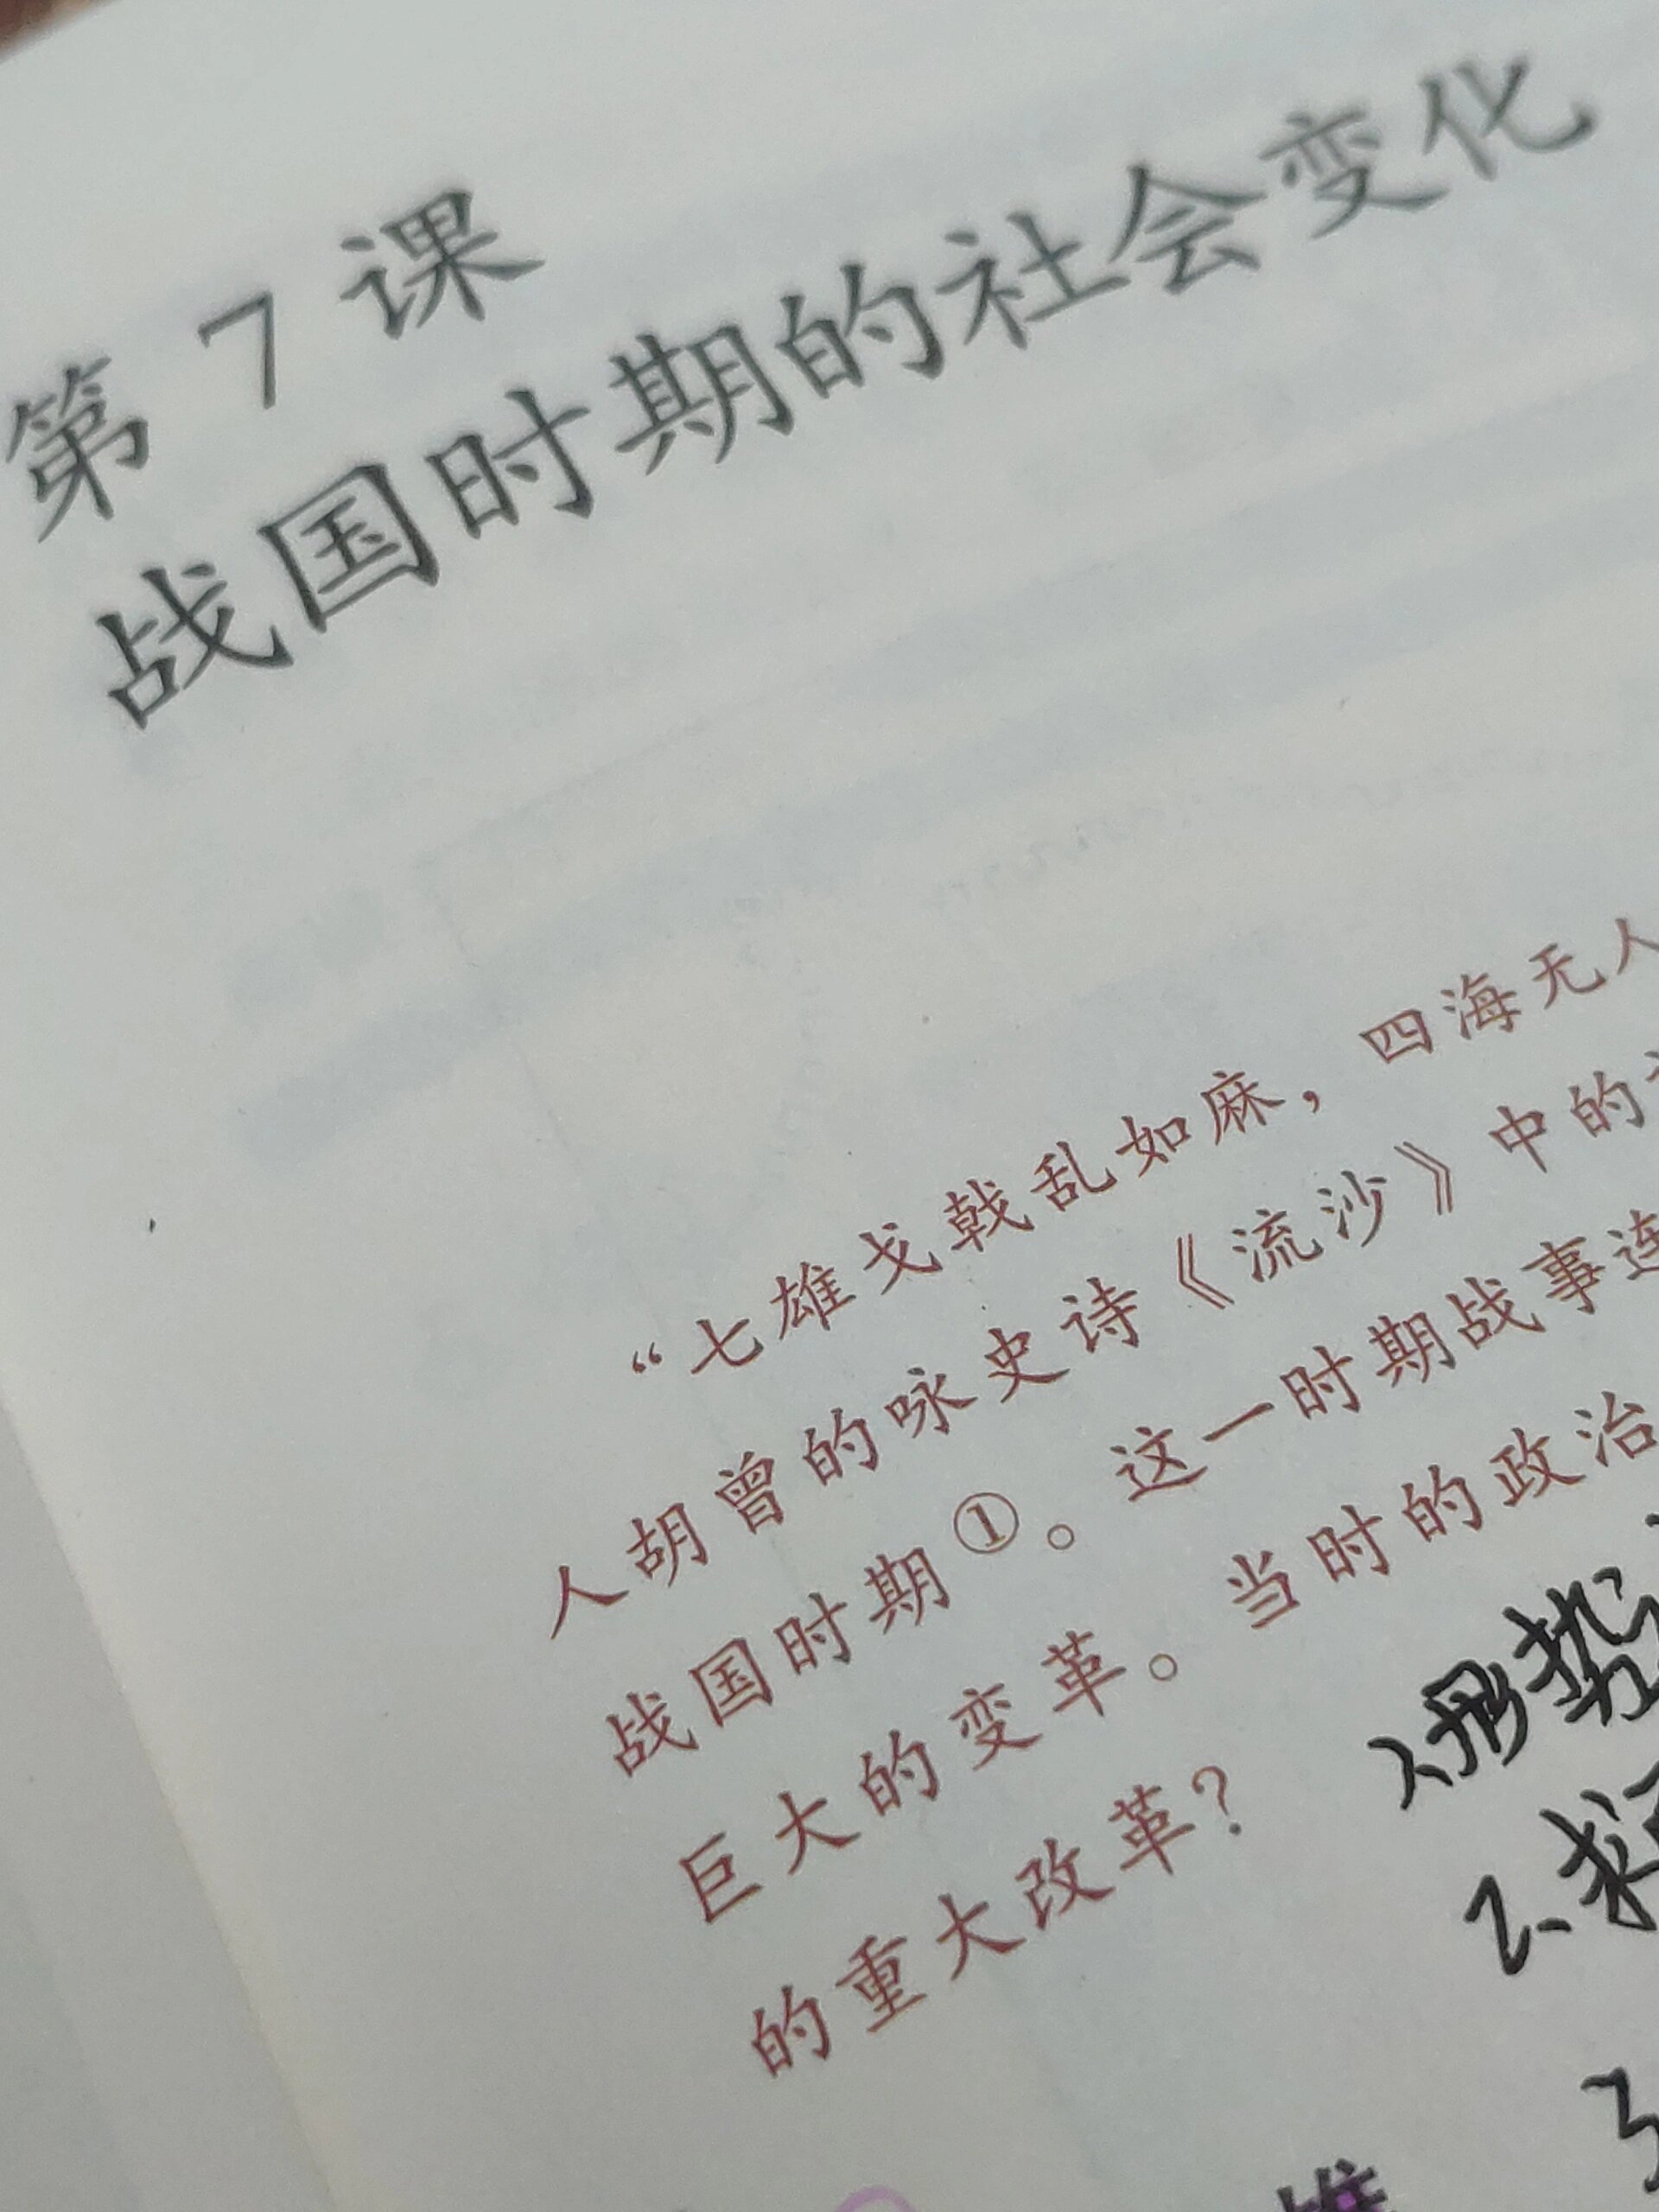 第7课
战国时期的社会变化
“七雄戈戟乱如麻，四海无人
人胡曾的咏史诗《流沙》中的
战国时期①。这一时期战事连
巨大的变革。当时的政治
的重大改革？
1、形势
2、求
3
雄